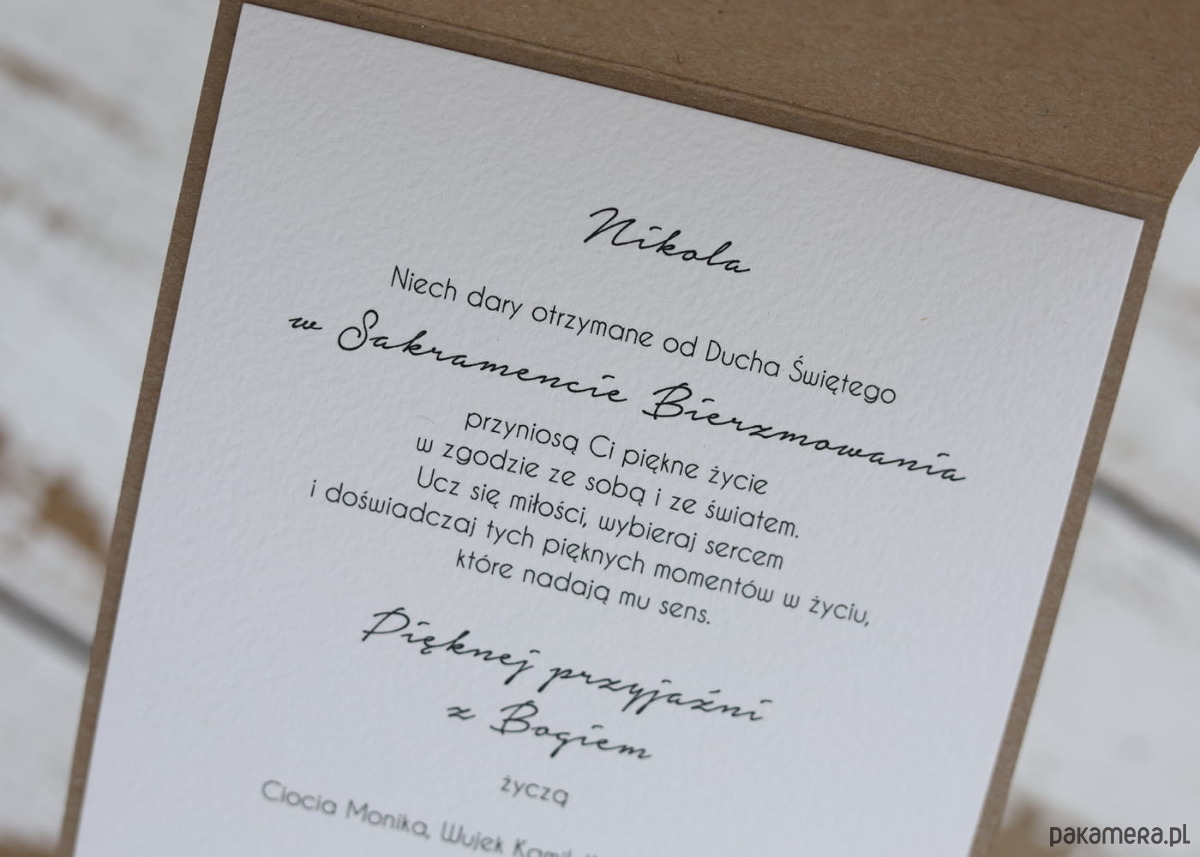 Nikola
Niech dary otrzymane od Ducha Świętego
w Sakramencie Bierzmowania
przyniosą Ci piękne życie
w zgodzie ze sobą i ze światem.
Ucz się miłości, wybieraj sercem
i doświadczaj tych pięknych momentów w życiu,
które nadają mu sens.
Pięknej przyjaźni
z Bogiem
życzą
Ciocia Monika, Wujek
pakamera.pl